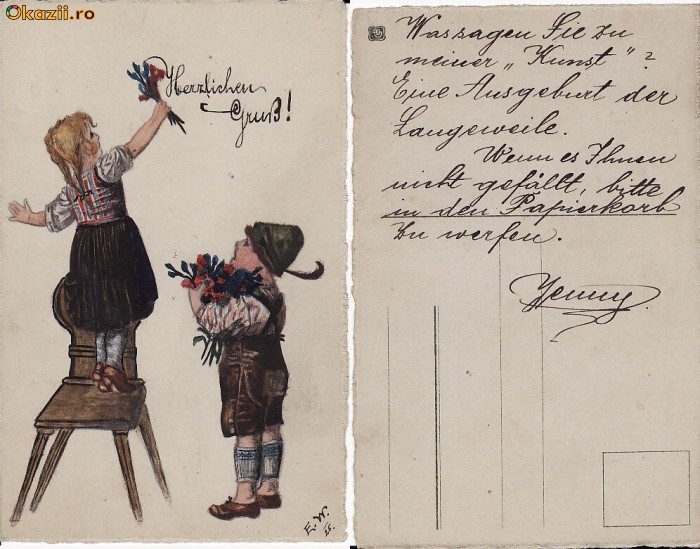 Okazii.ro
Herzlichen
Gruß!
E.W.
25.
Was sagen Sie zu
meiner „Kunst"?
Eine Ausgeburt der
Langeweile.
Wenn es Ihnen
nicht gefällt, bitte
in den Papierkorb
zu werfen.
Jenny.